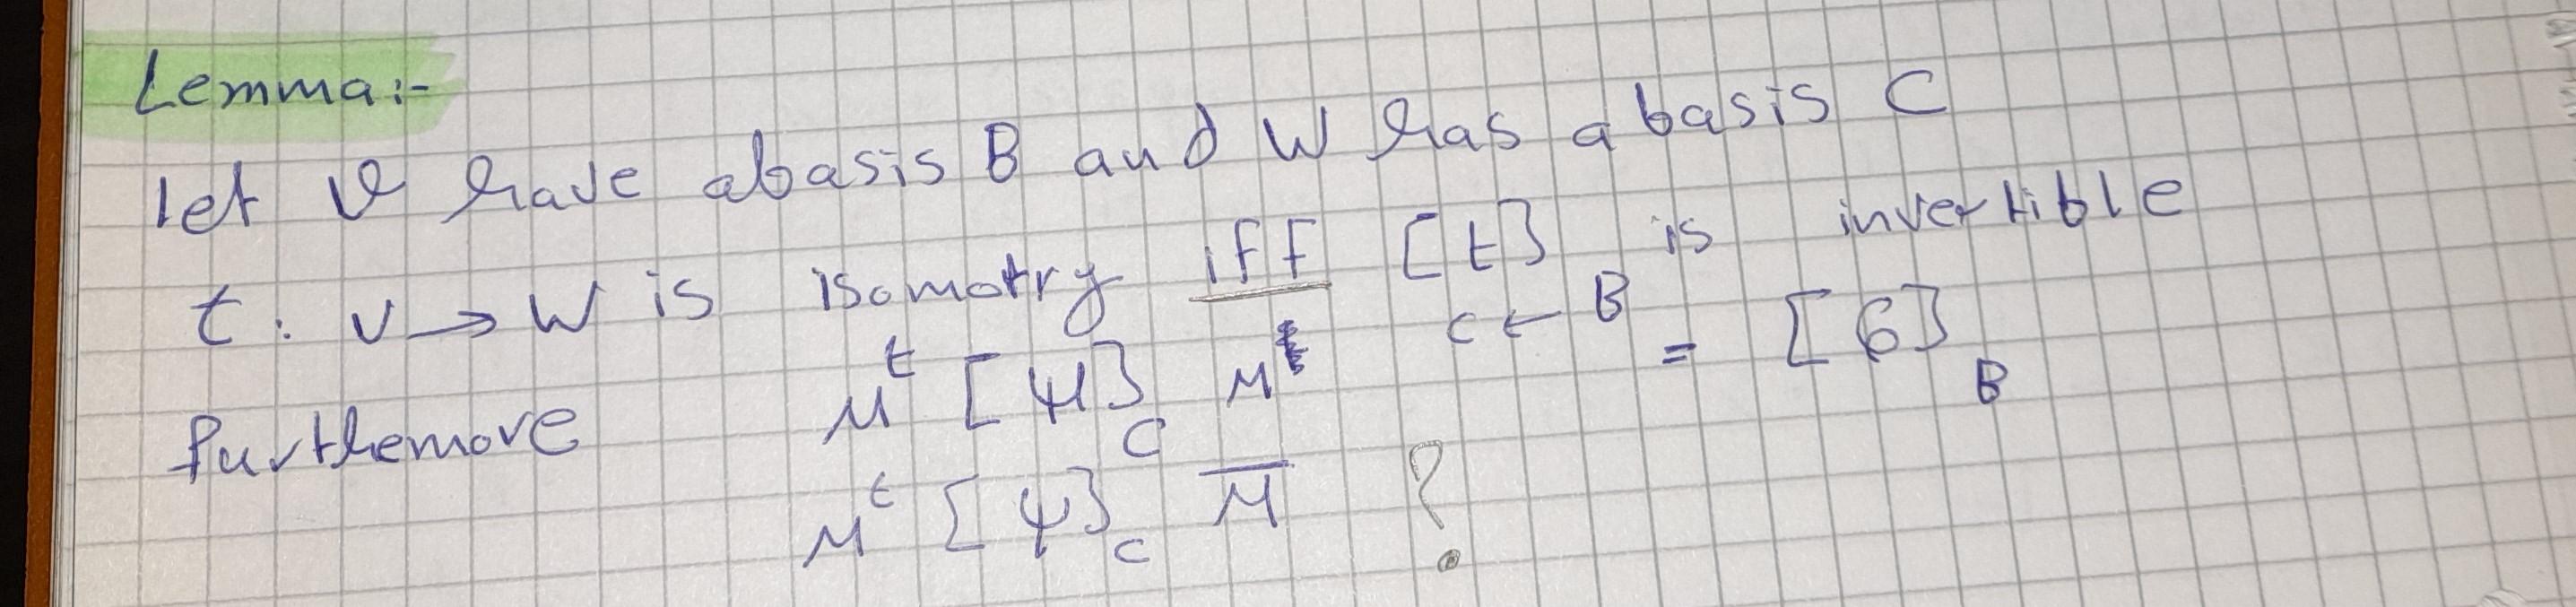 Lemma:-
let V have abasis B and W has a basis C
t: V → W is isomotry iff [t] C←B is invertible
furthemore M^t [ψ]_C M = [6]_B
M^t [ψ]_C M̅ ?